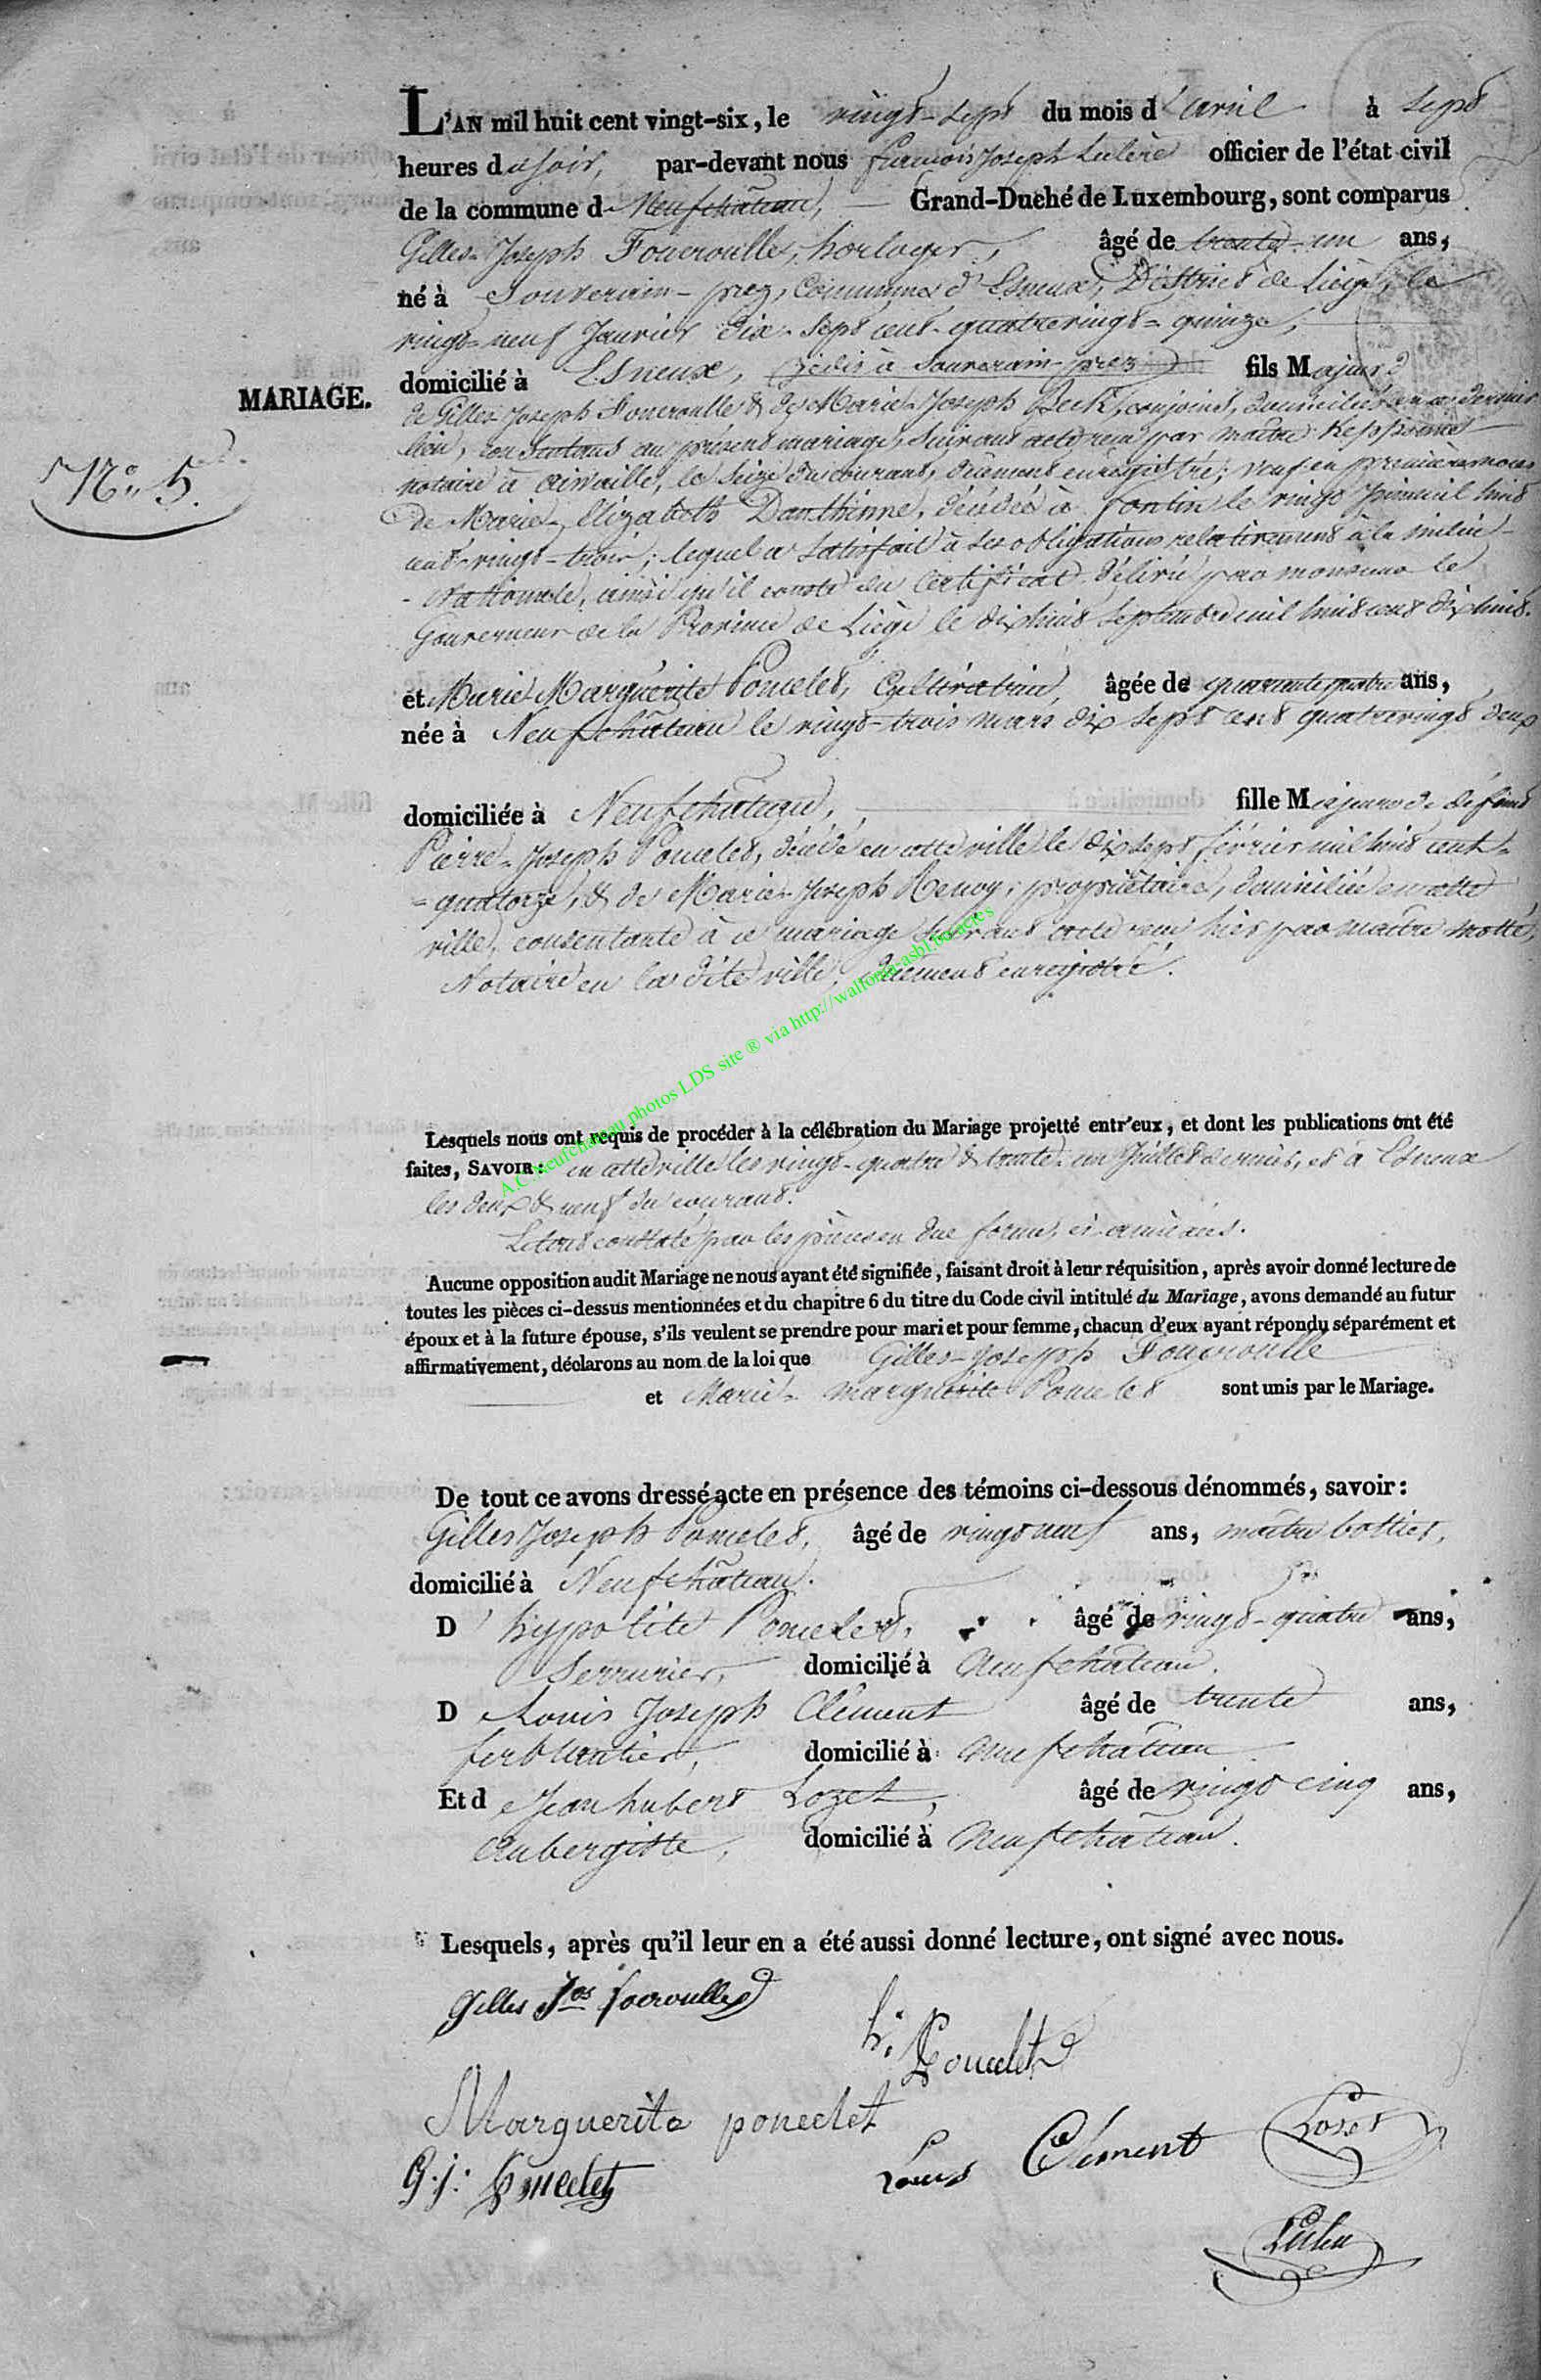 L'AN mil huit cent vingt-six, le vingt-sept du mois d'avril à sept
heures du soir, par-devant nous françois Joseph officier de l'état civil
de la commune de Neufchâteau, Grand-Duché de Luxembourg, sont comparus
Gilles-Joseph Foucroulle, horloger, âgé de trente-un ans,
né à Souverain-prez, Commune d'Esneux, District de Liège, le
vingt-neuf Janvier dix-sept cent-quatrevingt-quinze,
domicilié à Esneux, (jedis à Souverain-prez) fils Majeur
MARIAGE.
de Gilles-Joseph Foucroulle & de Marie-Joseph Beck, conjoints, domiciliés en ce dernier
lieu, consentans au présent mariage, suivant acte reçu par maître
N.° 5.
notaire à aiwaille, le seize du courant, dûement enregistré; veuf en premières noces
de Marie-Elizabeth Danthinne, décédée à fontin le vingt juin mil huit
cent-vingt-trois; lequel a satisfait à ses obligations relativement à la milice
-Nationale, ainsi qu'il conste du Certificat délivré par monsieur le
Gouverneur de la Province de Liège le dix huit Septembre mil huit cent dix huit.
et Marie-Marguerite Poncelet, Célibataire, âgée de quarante quatre ans,
née à Neufchâteau le vingt-trois mars dix sept cent quatrevingt deux
domiciliée à Neufchâteau, fille Majeure de défunt
Pierre-Joseph Poncelet, décédé en cette ville le dix sept février mil huit cent-
-quatorze, & de Marie-Joseph Henoy, propriétaire, domiciliée en cette
ville, consentante à ce mariage suivant acte reçu hier par maître motté,
Notaire en la dite ville, dûement enregistré.
A.C. Neufchateau photos LDS site ® via http://wallonia-asbl.be/actes
Lesquels nous ont requis de procéder à la célébration du Mariage projetté entr'eux, et dont les publications ont été
faites, SAVOIR: en cette ville les vingt-quatre & trente-un Juillet dernier, et à Esneux
les deux & neuf du courant.
Le tout constaté par les pièces en due forme, ci-annexées.
Aucune opposition audit Mariage ne nous ayant été signifiée, faisant droit à leur réquisition, après avoir donné lecture de
toutes les pièces ci-dessus mentionnées et du chapitre 6 du titre du Code civil intitulé du Mariage, avons demandé au futur
époux et à la future épouse, s'ils veulent se prendre pour mari et pour femme, chacun d'eux ayant répondu séparément et
affirmativement, déclarons au nom de la loi que Gilles-Joseph Foucroulle
et Marie-Marguerite Poncelet sont unis par le Mariage.
De tout ce avons dressé acte en présence des témoins ci-dessous dénommés, savoir:
Gilles Joseph Poncelet, âgé de vingt neuf ans, maître bottier,
domicilié à Neufchâteau.
D'hypolite Poncelet, âgé de vingt-quatre ans,
Serrurier, domicilié à Neufchâteau.
D Louis Joseph Clément âgé de trente ans,
ferblantier, domicilié à neufchâteau.
Et d Jean hubert Lozet, âgé de vingt cinq ans,
Aubergiste, domicilié à Neufchâteau.
Lesquels, après qu'il leur en a été aussi donné lecture, ont signé avec nous.
Gilles Jos focroulle
h. Poncelet
Marguerite poncelet
G. j. Poncelet
Louis Clément
Lozet